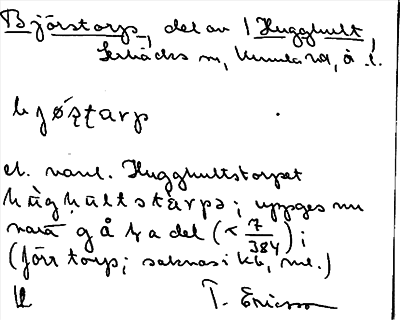 Björstorp, del av 1 Hugghult,
Lerbäcks sn, Kumla hd, Ö.l.
bjøʂʈarp
el. vanl. Hugghultstorpet
hùghùltstårpə; uppges nu
vara gå ¼ a del (< 7/384);
(förr torp; saknas i kb, ml.)
T. Ericsson